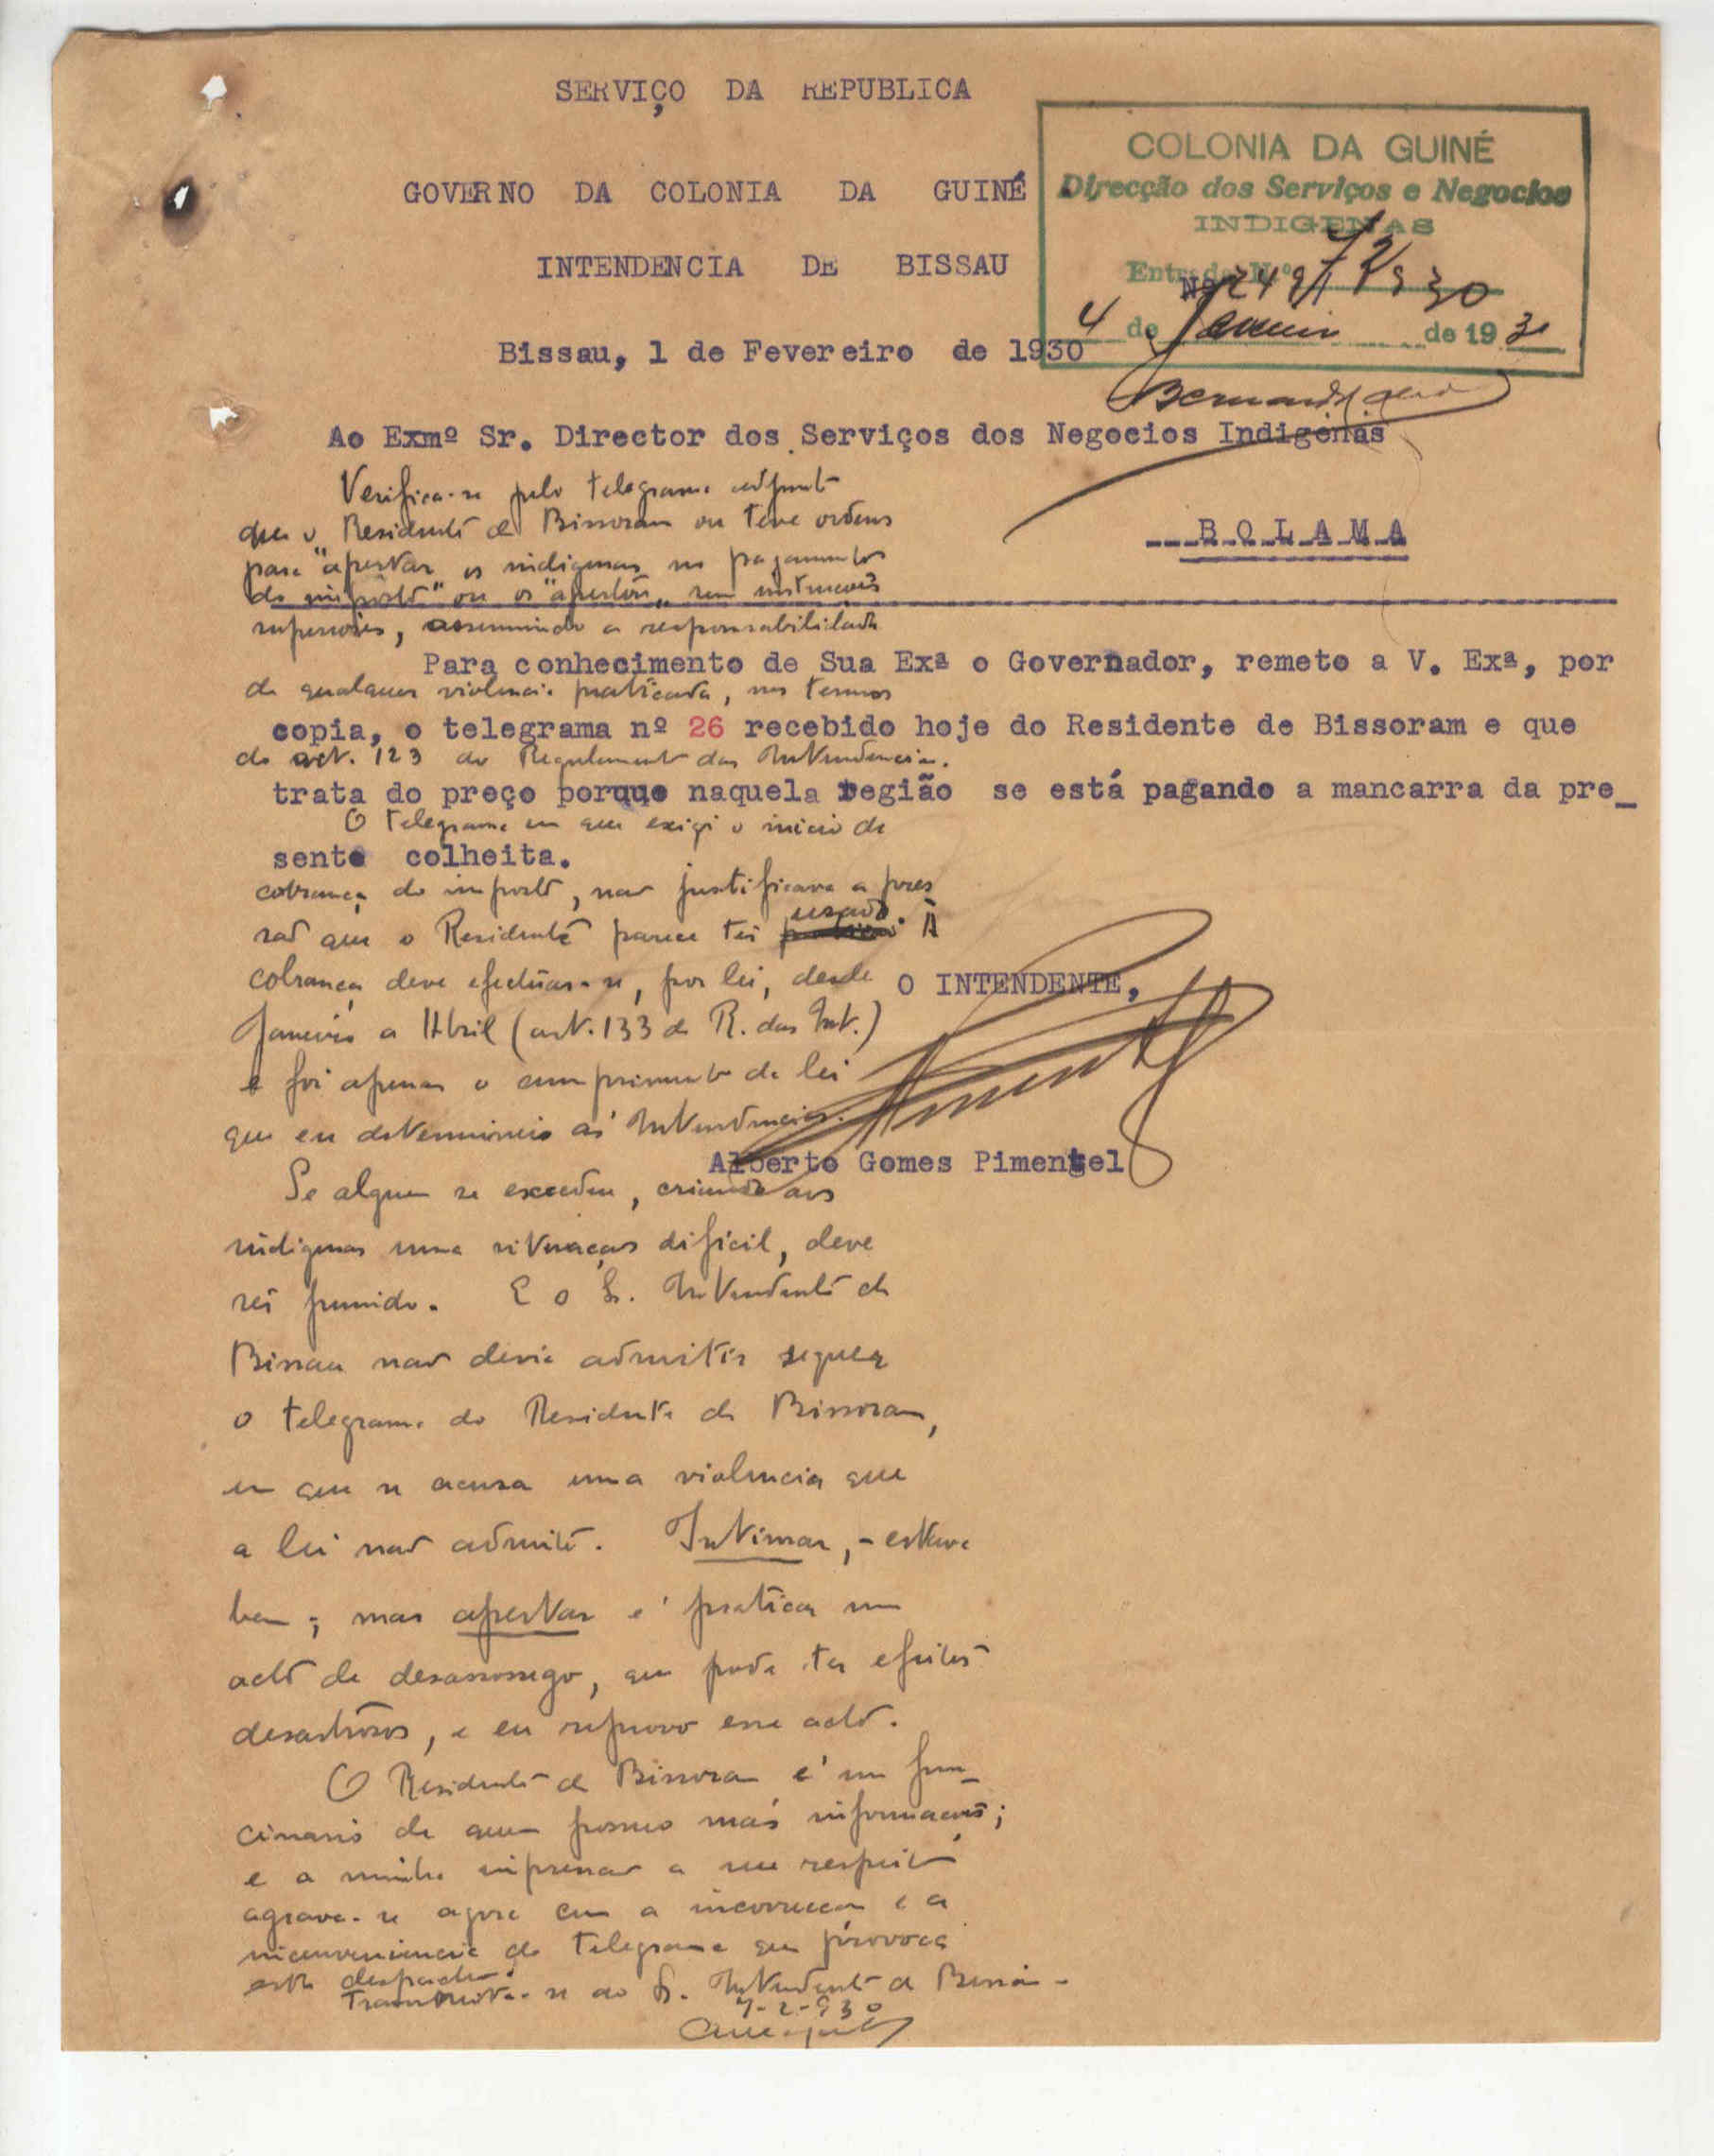 SERVIÇO DA REPUBLICA
GOVERNO DA COLONIA DA GUINÉ
INTENDENCIA DE BISSAU
Bissau, 1 de Fevereiro de 1930
COLONIA DA GUINÉ
Direcção dos Serviços e Negocios
INDIGENAS
Entrada N.º
4 de Janeiro de 1930
Ao Exmº Sr. Director dos Serviços dos Negocios Indigenas
BOLAMA
Para conhecimento de Sua Exª o Governador, remeto a V. Exª, por
copia, o telegrama nº 26 recebido hoje do Residente de Bissoram e que
trata do preço porque naquela região se está pagando a mancarra da pre_
sente colheita.
O INTENDENTE,
Alberto Gomes Pimentel
Verifica-se pelo telegrama adjunto
que o Residente de Bissoram ou teve ordens
para "apertar os indigenas no pagamento
do imposto" ou os "apertou" sem instruções
superiores, assumindo a responsabilidade
de qualquer violencia praticada, nos termos
do art. 123 do Regulamento das Intendencias.
O telegrama em que exigi o inicio da
cobrança do imposto, não justificava a pres
são que o Residente parece ter usado. A
cobrança deve efectuar-se, por lei, desde
Janeiro a Abril (art. 133 do R. das Int.)
e foi apenas o cumprimento da lei
que eu determinei ás Intendencias.
Se alguem se excedeu, criando aos
indigenas uma situação dificil, deve
ser punido. E o Sr. Intendente de
Bissau não devia admitir sequer
o telegrama do Residente de Bissoram,
em que se acusa uma violencia que
a lei não admite. Intimar, - estava
bem; mas apertar é praticar um
acto de desassossego, que pode ter efeitos
desastrosos, e eu reprovo esse acto.
O Residente de Bissoram é um fun_
cionario de quem possuo más informações;
e a minha impressão a seu respeito
agrava-se agora com a incorrecção e a
inconveniencia do telegrama que provoca
este despacho.
Transmita-se ao Sr. Intendente de Bissau.
7-2-930